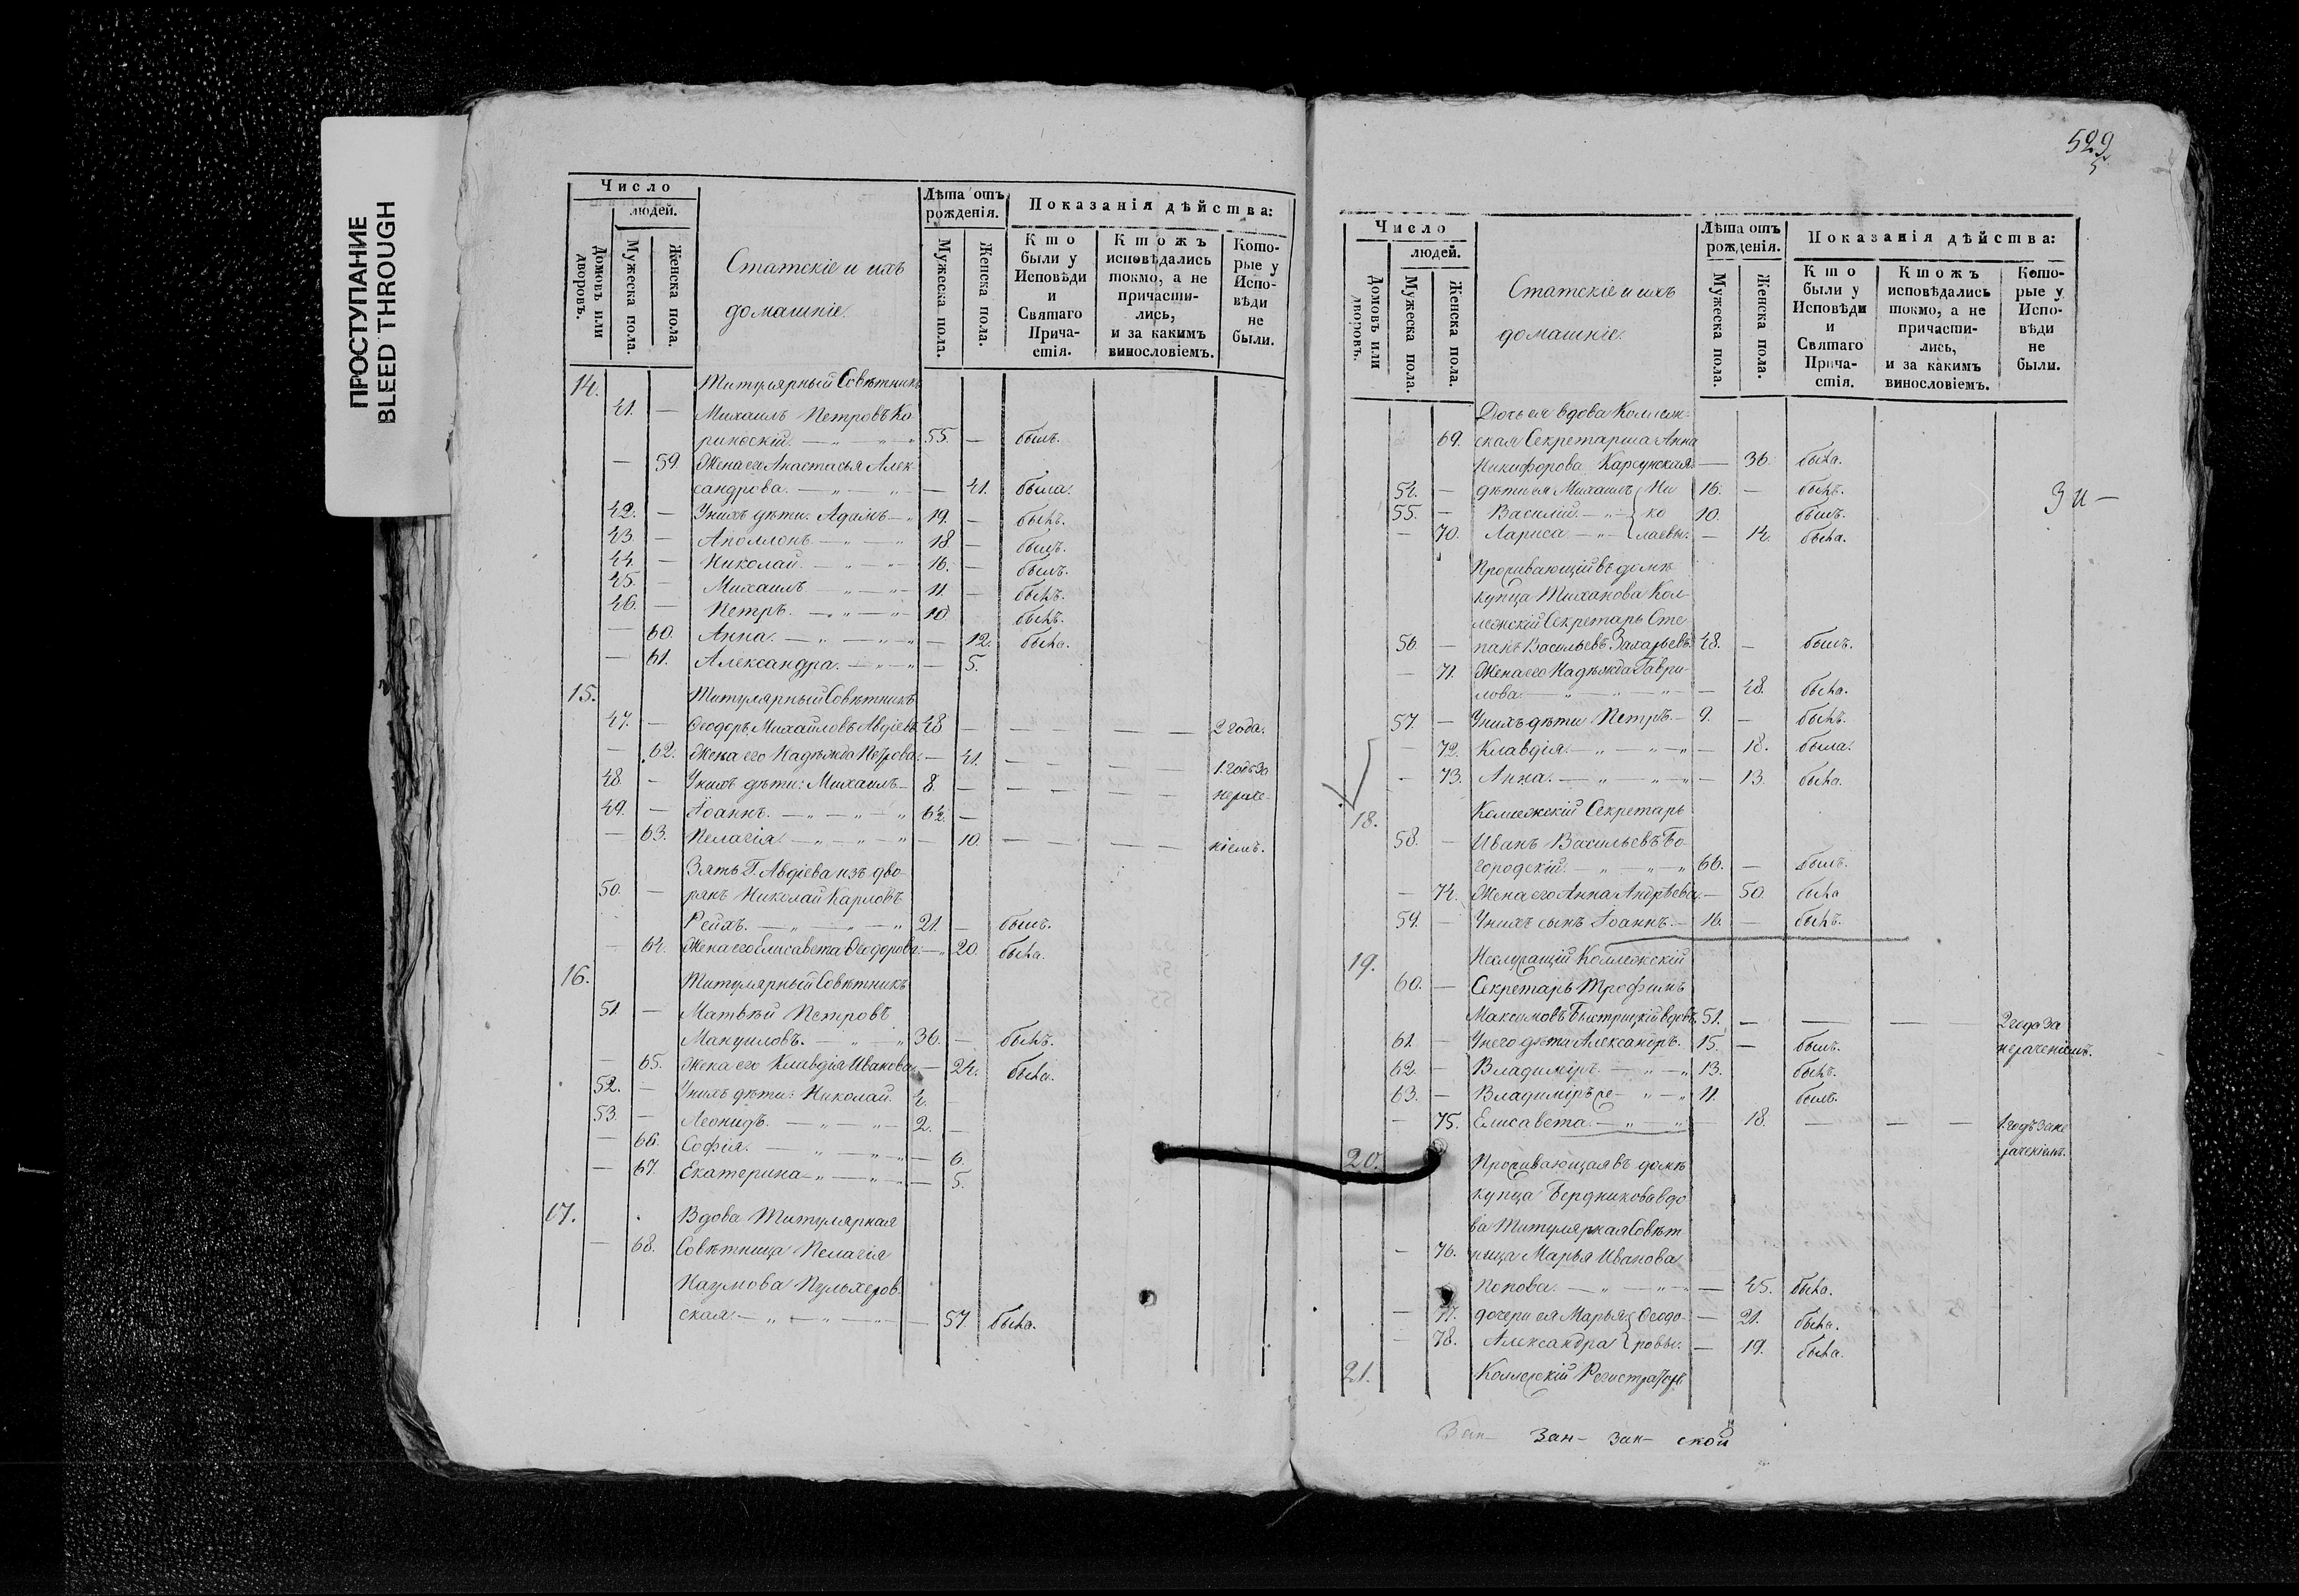 ПРОСТУПАНИЕ
BLEED THROUGH
Число
людей.
Домовъ или дворовъ.
Мужеска пола.
Женска пола.
Статскіе и ихъ
домашніе.
Лѣта отъ рожденія.
Мужеска пола.
Женска пола.
Показанія дѣйства:
Кто были у Исповѣди и Святаго Прича-стія.
Ктожъ исповѣдались токмо, а не причасти-лись, и за какимъ винословіемъ.
Кото-рые у Испо-вѣди не были.
14. Титулярный Совѣтникъ
41. — Михаилъ Петровъ Ко
ринскій. — „ — „ 55. — былъ.
— 59. Жена его Анастасья Алек
сандрова. — „ — „ — 41. была.
42. — У нихъ дѣти: Адамъ — „ 19. — былъ.
43. — Аполлонъ — „ — „ 18. — былъ.
44. — Николай. — „ — „ 16. — былъ.
45. — Михаилъ — „ — „ 11. — былъ.
46. — Петръ. — „ — „ 10 былъ.
— 60. Анна. — „ — „ — 12. была.
— 61. Александра. — „ — „ — 5.
15. Титулярный Совѣтникъ
47. — Ѳеодоръ Михайловъ Авдіевъ 48 — — — — — 2 года.
— 62. Жена его Надѣжда Петрова. — 41. — — — — 1. годъ за
48 — У нихъ дѣти: Михаилъ — 8. — — — — — нераче-
49. — Іоаннъ. — „ — „ — „ 6½ —
— 63. Пелагія. — „ — „ — „ — 10. — — — — ніемъ.
Зять Г. Авдіева изъ дво-
50. — рянъ Николай Карловъ
Рейхъ. — „ — „ — „ 21. — былъ.
— 64. Жена его Елисавета Ѳеодорова. — 20. была.
16. Титулярный Совѣтникъ
51. — Матвѣй Петровъ
Мануиловъ. — „ — „ 36. — былъ.
— 65. Жена его Клавдія Иванова. — 24. была.
52. — У нихъ дѣти: Николай. 4. —
53. — Леонидъ. — „ — „ — 2. —
— 66. Софія. — „ — „ — 6.
— 67. Екатерина — „ — „ — 5.
17. Вдова Титулярная
— 68. Совѣтница Пелагія
Наумова Пульхеров-
ская. — „ — „ — „ — 57. была.
529
5
Число
людей.
Домовъ или дворовъ.
Мужеска пола.
Женска пола.
Статскіе и ихъ
домашніе.
Лѣта отъ рожденія.
Мужеска пола.
Женска пола.
Показанія дѣйства:
Кто были у Исповѣди и Святаго Прича-стія.
Ктожъ исповѣдались токмо, а не причасти-лись, и за какимъ винословіемъ.
Кото-рые у Испо-вѣди не были.
Дочь ея вдова Коллеж-
69. ская Секретарша Анна
Никифорова Карсунская. — 36. была.
54. — дѣти ея Михаилъ Ни 16. — былъ.
55. — Василій. — „ — ко 10. былъ.
— 70. Лариса — „ — лаевы. — 14. была.
Проживающій въ домѣ
купца Тиханова Кол-
лежскій Секретарь Сте
56. — панъ Васильевъ Захарьевъ 48. — былъ.
— 71. Жена его Надѣжда Гаври-
лова. — „ — „ — „ — 48. была.
57. — У нихъ дѣти Петръ. — 9. — былъ.
— 72. Клавдія. — „ — „ — „ — 18. была.
— 73. Анна. — „ — „ — 13. была.
18. Коллежскій Секретарь
58. — Иванъ Васильевъ Бо-
городскій. — „ — „ — „ 66. — былъ.
— 74. Жена его Анна Андрѣева. — 50. была
59. — У нихъ сынъ Іоаннъ. — 16. — былъ.
19. Неслужащій Коллежскій
60. — Секретарь Трофимъ
Максимовъ Быстрицкій вдовъ 51. — — — — 2 года за
61. — У него дѣти Александръ. 15. — былъ. нераченіемъ.
62. — Владиміръ. — „ — „ 13. былъ.
63. — Владиміръ же — „ — „ 11. былъ.
— 75. Елисавета. — „ — „ — 18. — — — 1. годъ за не
раченіемъ.
20. Проживающая въ домѣ
купца Бердникова вдо
ва Титулярная Совѣт
— 76. ница Марья Иванова
Попова. — „ — „ — 45. была.
— 77. дочери ея Марья Ѳеодо- — 21. была.
— 78. Александра ровы. — 19. была.
21. Коллежскій Регистраторъ
Зан- Зан- зак- ской